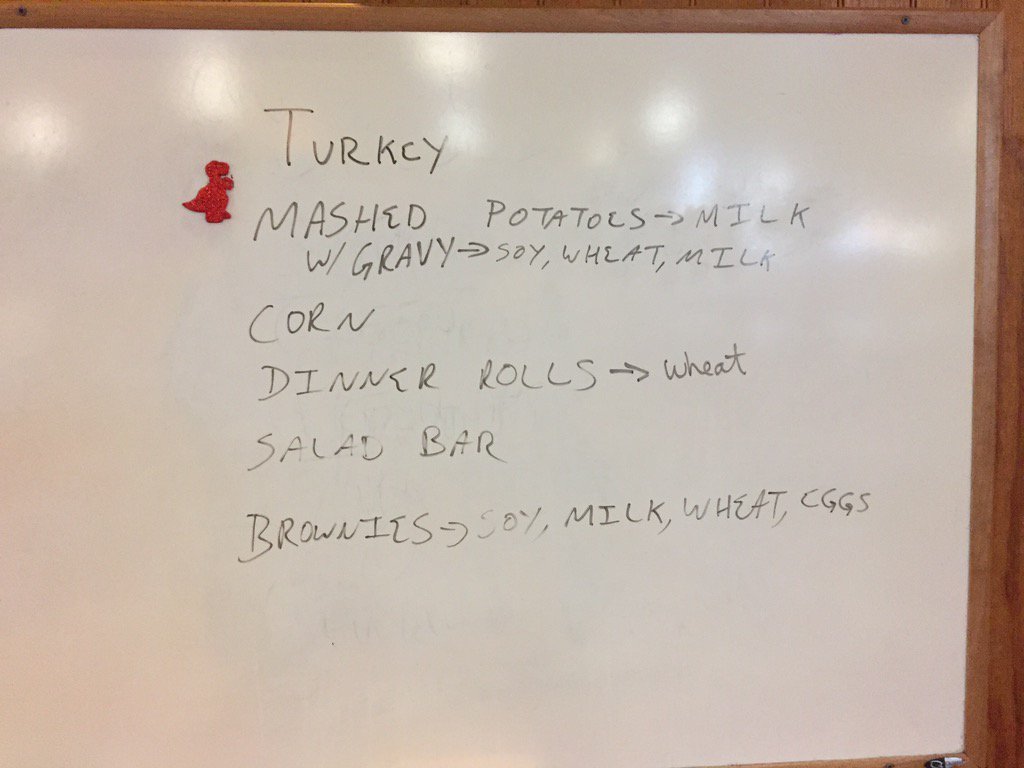 TURKEY
MASHED POTATOES → MILK
W/ GRAVY → SOY, WHEAT, MILK
CORN
DINNER ROLLS → wheat
SALAD BAR
BROWNIES → SOY, MILK, WHEAT, EGGS